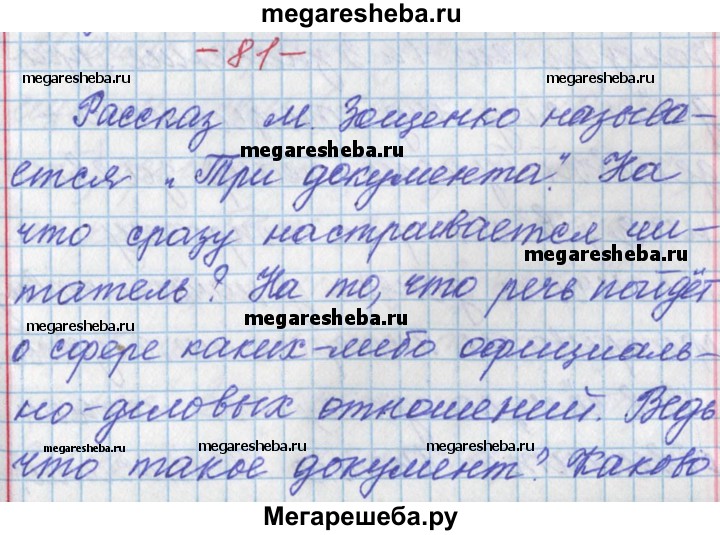 megaresheba.ru
-81-
megaresheba.ru megaresheba.ru
Рассказ М. Зощенко называ-
megaresheba.ru
ется „Три документа". На
что сразу настраивается чи-
megaresheba.ru
татель? На то, что речь пойдёт
megaresheba.ru megaresheba.ru
о сфере каких-либо официаль-
но-деловых отношений. Ведь
megaresheba.ru megaresheba.ru megaresheba.ru
что такое документ? Каково
Мегарешеба.ру